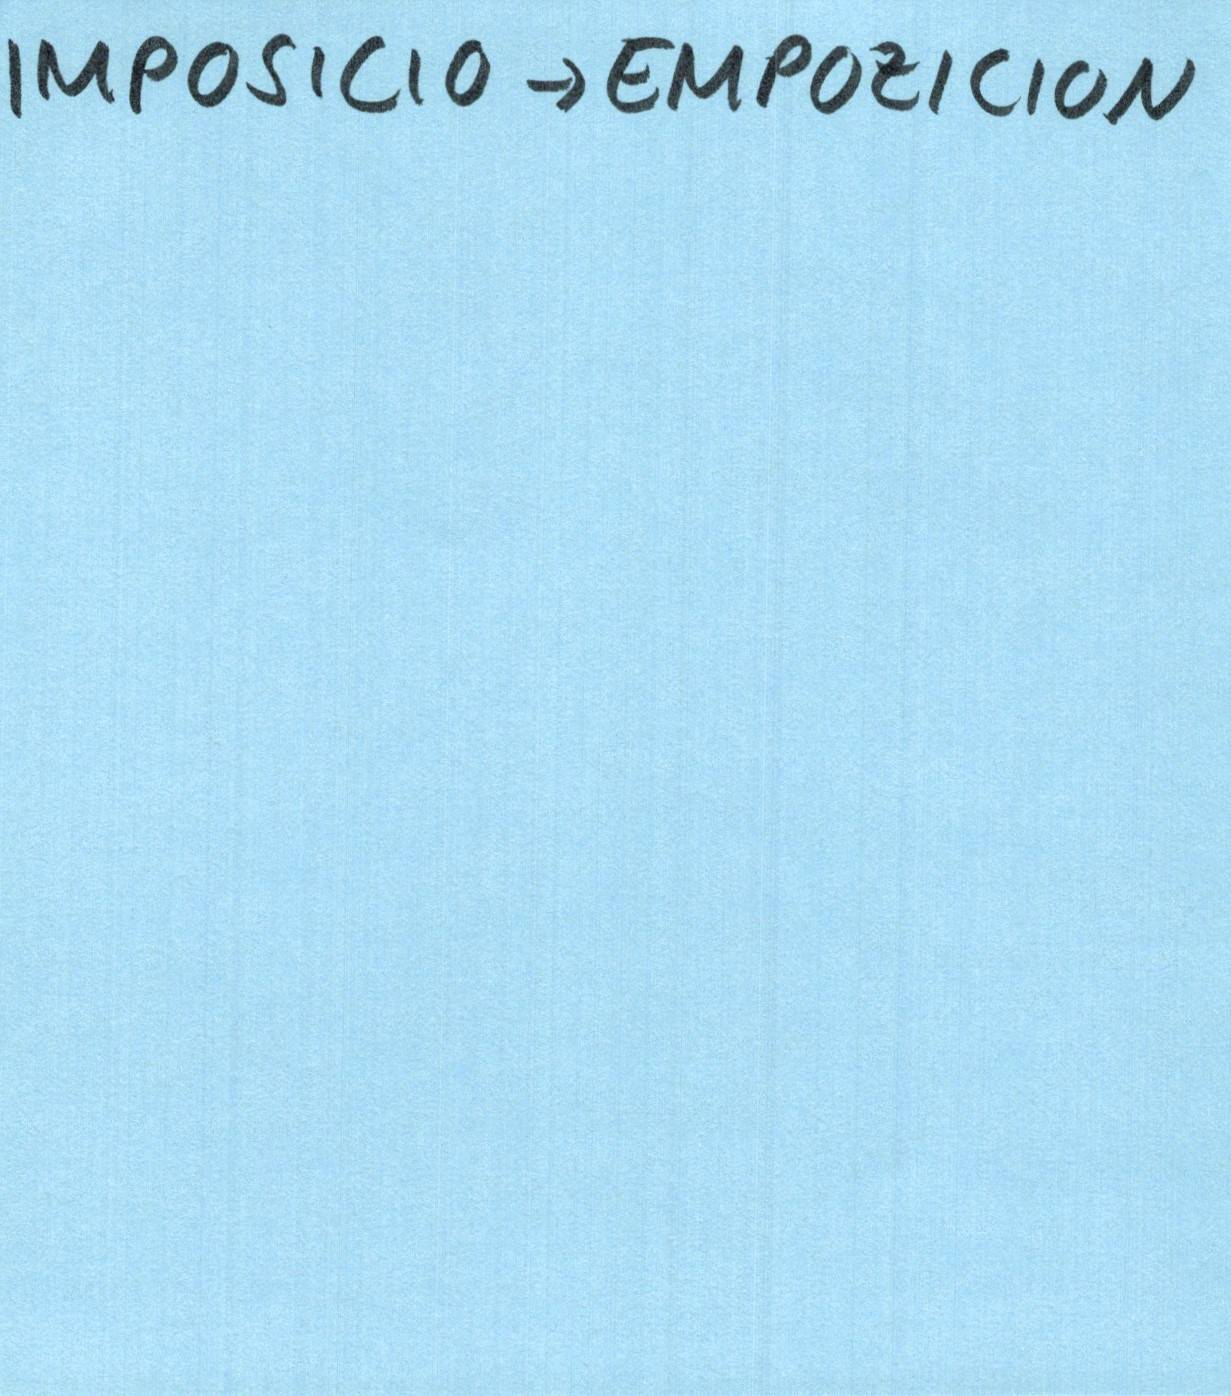 IMPOSICIO → EMPOZICION